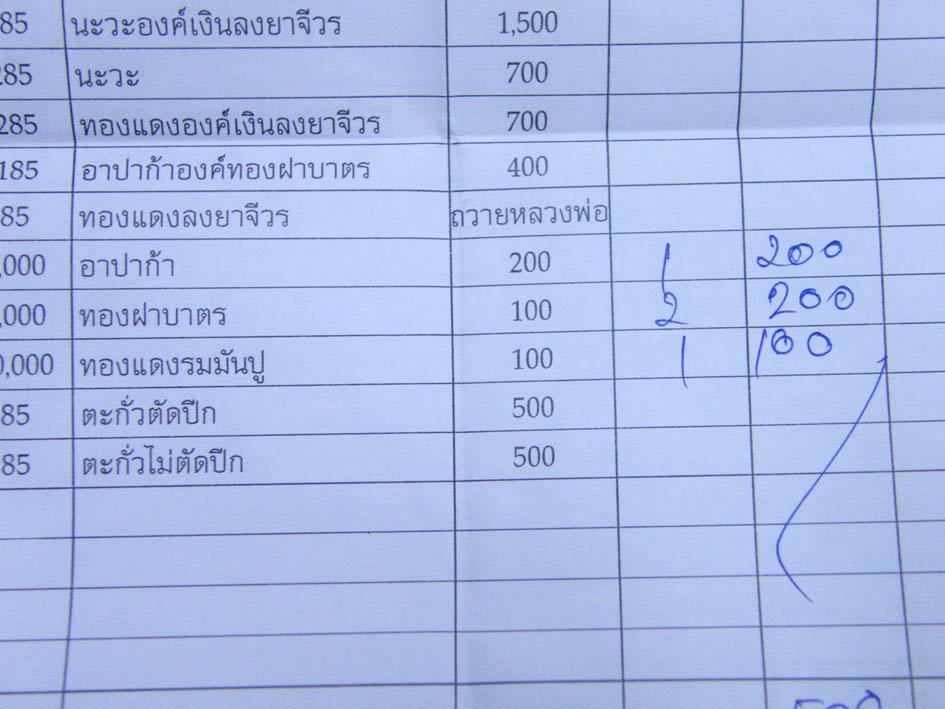 85 นะวะองค์เงินลงยาจีวร 1,500
285 นะวะ 700
285 ทองแดงองค์เงินลงยาจีวร 700
185 อาปาก้าองค์ทองฝาบาตร 400
85 ทองแดงลงยาจีวร ถวายหลวงพ่อ
,000 อาปาก้า 200 1 200
,000 ทองฝาบาตร 100 2 200
0,000 ทองแดงรมมันปู 100 1 100
85 ตะกั่วตัดปีก 500
85 ตะกั่วไม่ตัดปีก 500
500